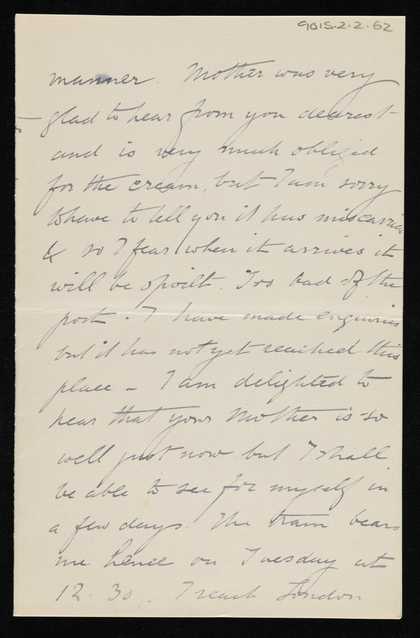 9015.2.2.62
manner. Mother was very
glad to hear from you dearest
and is very much obliged
for the cream, but I am sorry
to have to tell you it has miscarried
& so I fear when it arrives it
will be spoilt. Too bad of the
post. I have made enquiries
but it has not yet reached this
place – I am delighted to
hear that your Mother is so
well just now but I shall
be able to see for myself in
a few days. The train bears
me hence on Tuesday at
12.30. I reach London